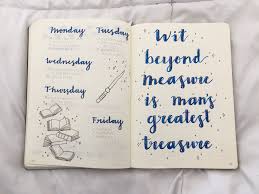 Monday Tuesday
Wednesday
Thursday
Friday
Wit
beyond
measure
is man's
greatest
treasure